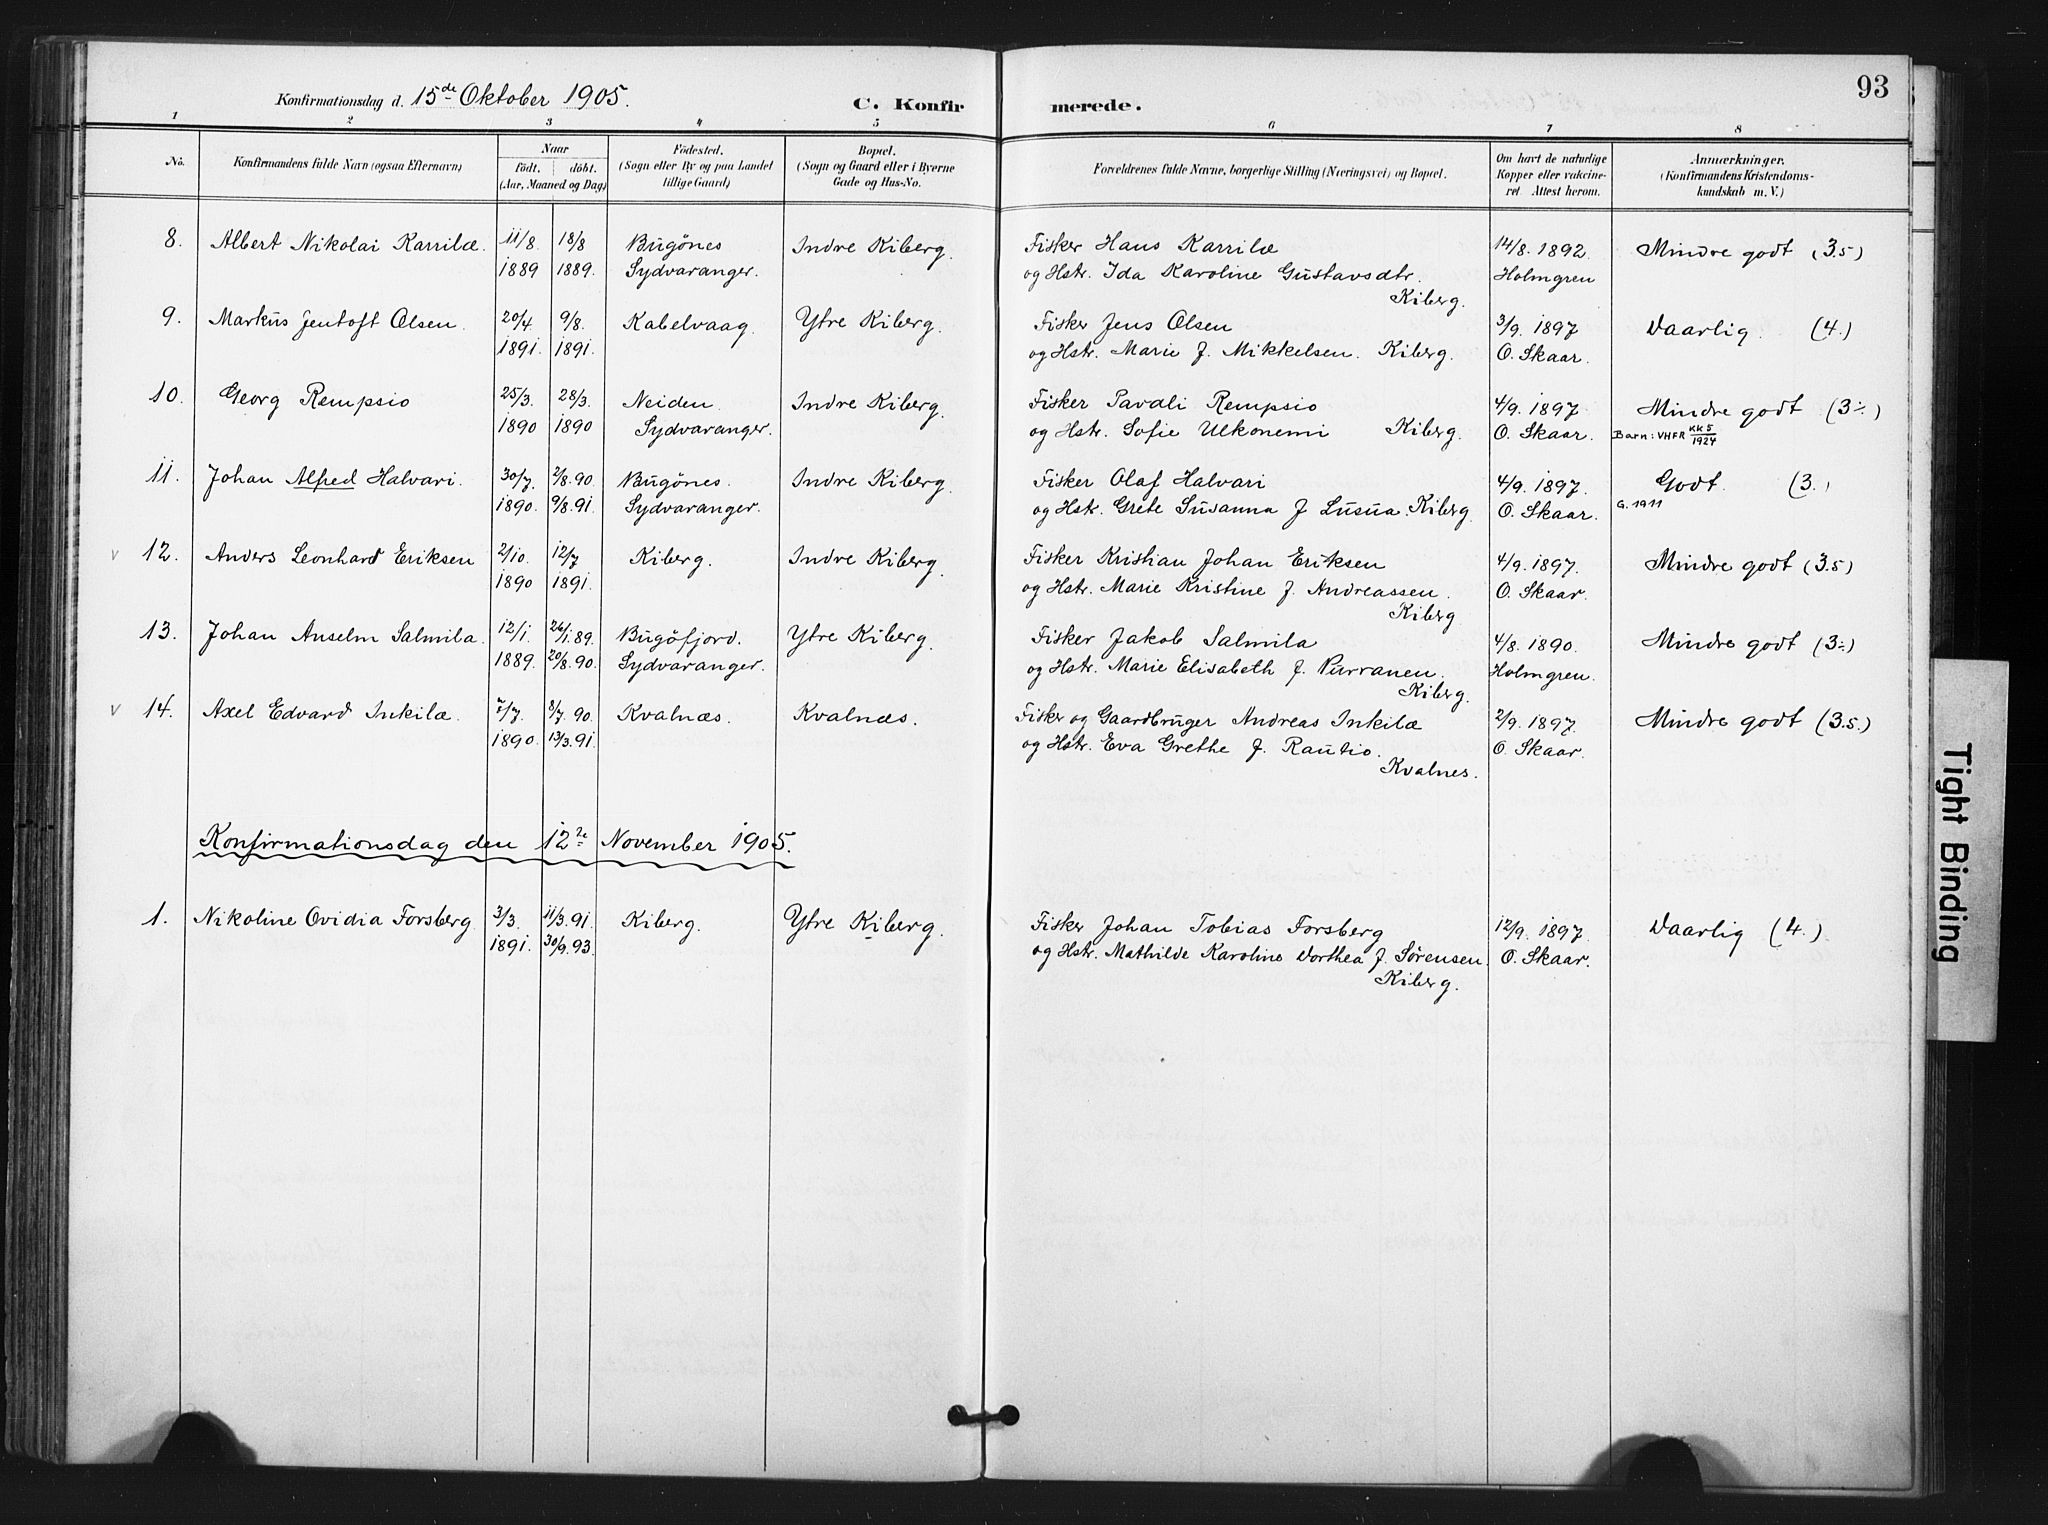 Konfirmationsdag d. 15de Oktober 1905. C. Konfirmerede. 93
1 2 3 4 5 6 7 8
No. Konfirmandens fulde Navn (ogsaa Efternavn) Naar Födt. döbt. (Aar, Maaned og Dag) Födested. (Sogn eller By og paa Landet tillige Gaard) Bopæl. (Sogn og Gaard eller i Byerne Gade og Hus-No. Forældrenes fulde Navne, borgerlige Stilling (Næringsvei) og Bopæl. Om havt de naturlige Kopper eller vakcineret. Attest herom. Anmærkninger. (Konfirmandens Kristendomskundskab m. V.)
8. Albert Nikolai Karrilæ. 11/8. 18/8 Bugönes Indre Kiberg. Fisker Hans Karrilæ 14/8. 1892. Mindre godt (3.5)
1889 1889. Sydvaranger. og Hstr. Ida Karoline Gustavsdtr. Holmgren
Kiberg.
9. Markus Jentoft Olsen. 20/4. 9/8. Kabelvaag. Ytre Kiberg. Fisker Jens Olsen 3/9. 1897 Daarlig. (4.)
1891. 1891. og Hstr. Marie f. Mikkelsen. Kiberg. O. Skaar.
10. Georg Rempsio 25/3. 28/3. Neiden. Indre Kiberg. Fisker Pavali Rempsio 4/9. 1897. Mindre godt (3÷)
1890 1890 Sydvaranger. og Hstr. Sofie Ulkonemi Kiberg. O. Skaar. Barn: VHFR KK5/1924
11. Johan Alfred Halvari. 30/7. 2/8.90. Bugönes. Indre Kiberg. Fisker Olaf Halvari 4/9. 1897. Godt. (3.)
1890. 9/8.91. Sydvaranger. og Hstr. Grete Susanna f Lusua. Kiberg. O. Skaar. G. 1911
v 12. Anders Leonhard Eriksen 2/10. 12/7 Kiberg. Indre Kiberg. Fisker Kristian Johan Eriksen 4/9. 1897. Mindre godt (3.5)
1890 1891. og Hstr. Marie Kristine f. Andreassen. O. Skaar.
Kiberg
13. Johan Anselm Salmila. 12/1. 26/1.89. Bugöfjord. Ytre Kiberg. Fisker Jakob Salmila 4/8. 1890. Mindre godt (3÷)
1889. 20/8.90. Sydvaranger. og Hstr. Marie Elisabeth f. Purranen. Holmgren.
Kiberg.
v 14. Axel Edvard Inkilæ. 7/7. 8/7.90. Kvalnæs. Kvalnæs. Fisker og Gaardbruger Andreas Inkilæ 2/9. 1897. Mindre godt (3.5.)
1890. 13/3.91. og Hstr. Eva Grethe f. Rautio. O. Skaar.
Kvalnes.
Konfirmationsdag den 12te November 1905.
1. Nikoline Ovidia Forsberg 3/3. 11/3.91. Kiberg. Ytre Kiberg. Fisker Johan Tobias Forsberg 12/9. 1897. Daarlig (4.)
1891. 30/9.93. og Hstr. Mathilde Karoline Dorthea f. Sørensen. O. Skaar.
Kiberg.
Tight Binding